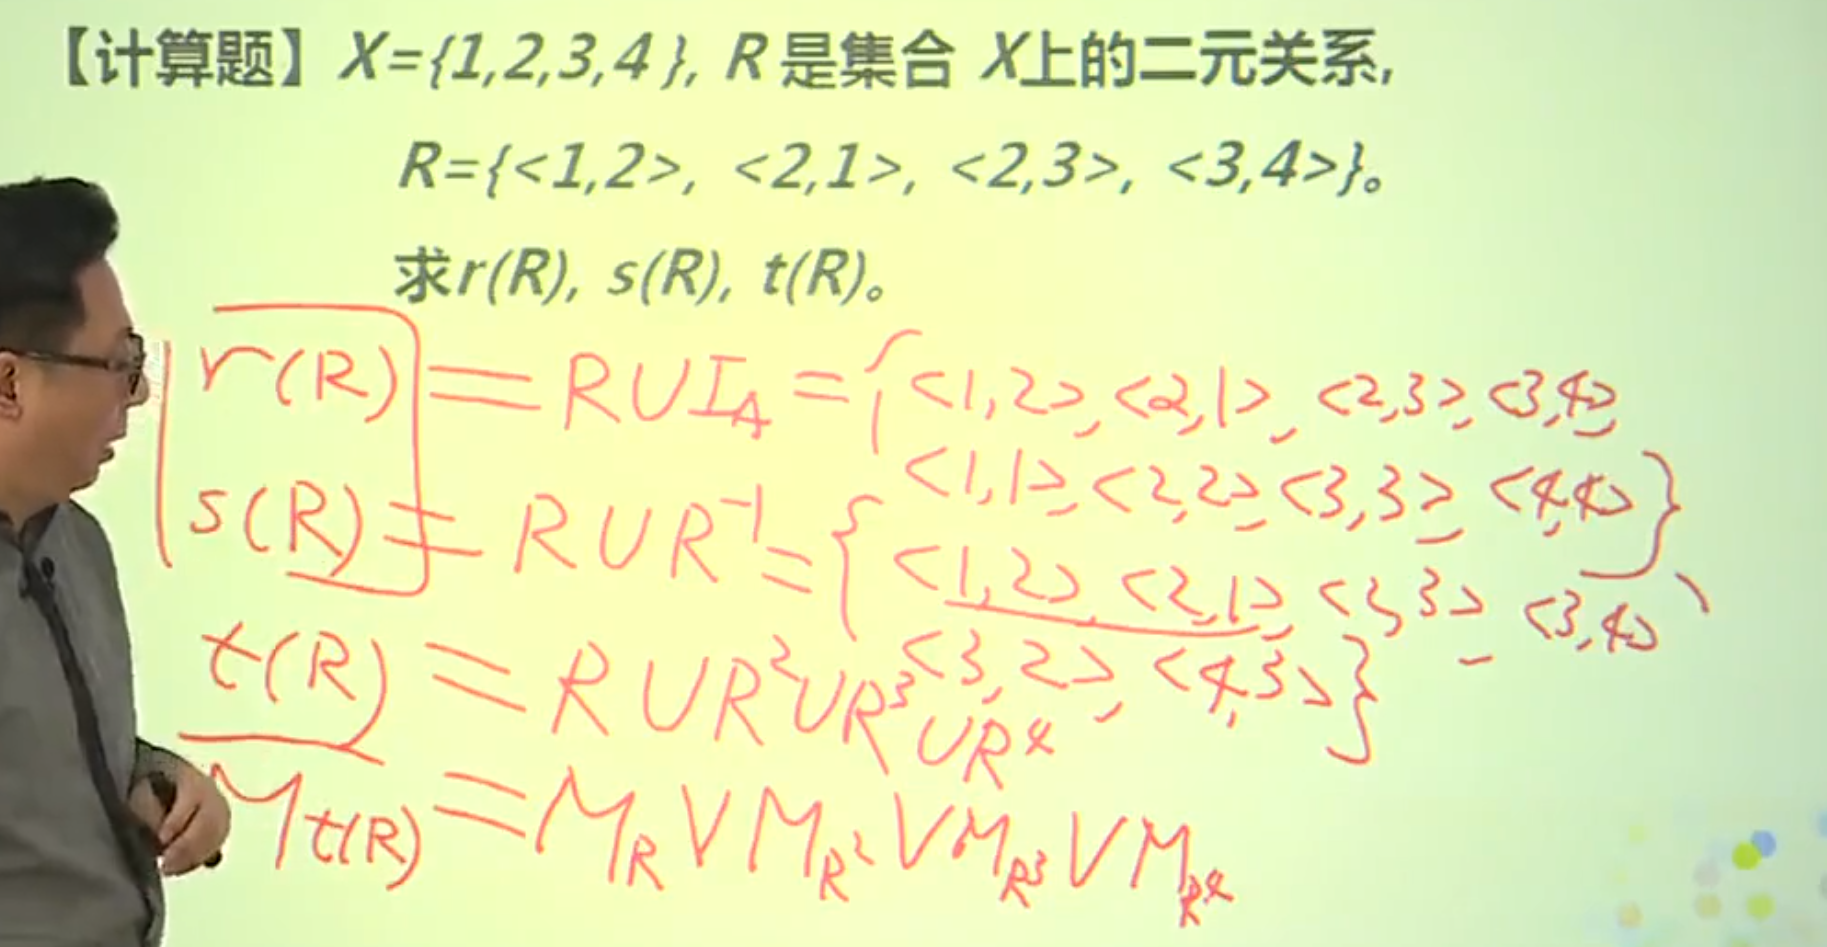 【计算题】X={1,2,3,4}, R是集合 X上的二元关系,
R={<1,2>, <2,1>, <2,3>, <3,4>}。
求r(R), s(R), t(R)。
r(R) = R∪I_A = {<1,2>,<2,1>,<2,3>,<3,4>,
<1,1>,<2,2>,<3,3>,<4,4>}
s(R) = R∪R⁻¹ = {<1,2>,<2,1>,<2,3>,<3,4>、
<3,2>,<4,3>}
t(R) = R∪R²∪R³∪R⁴
M_t(R) = M_R∨M_R²∨M_R³∨M_R⁴